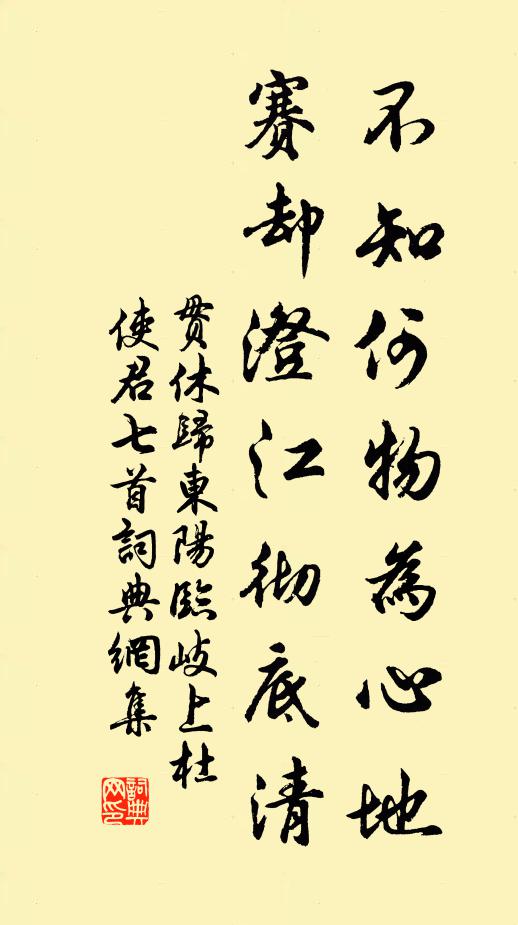 不知何物為心地
賽却澄江彻底清
贯休歸東陽臨岐上杜
使君七首詞典網集
詞典
网印